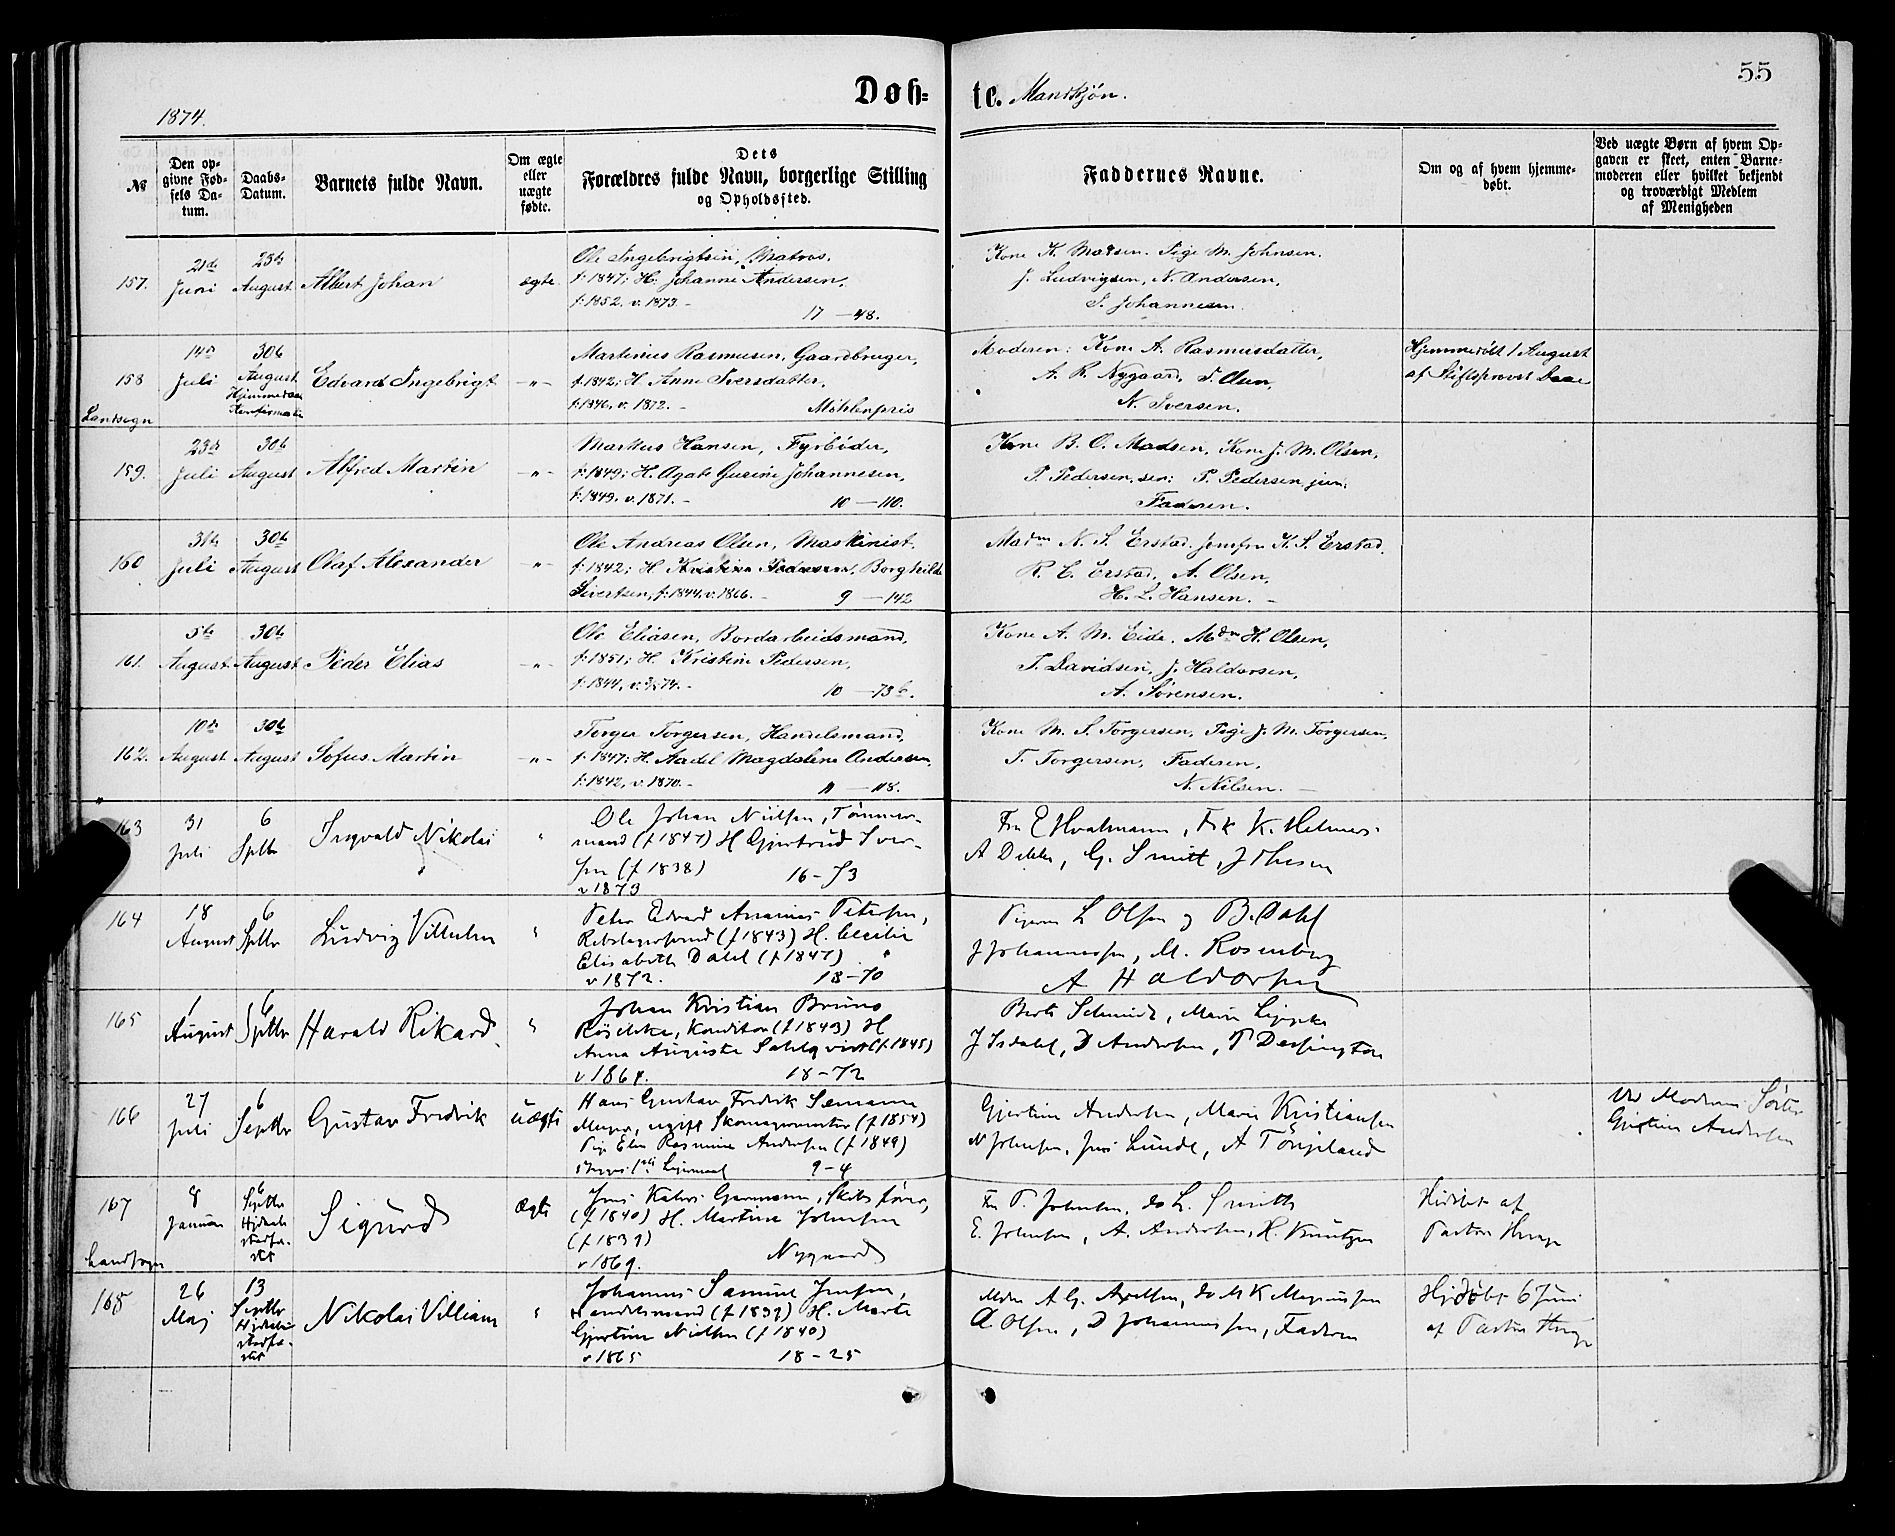 55
Døb=te. Mandkjøn.
1874.
No
Den op-
givne Fød-
sels Da-
tum.
Daabs-
Datum.
Barnets fulde Navn.
Om ægte
eller
uægte
fødte.
Dets
Forældres fulde Navn, borgerlige Stilling
og Opholdssted.
Faddernes Navne.
Om og af hvem hjemme-
døbt.
Ved uægte Børn af hvem Op-
gaven er skeet, enten Barne-
moderen eller hvilket bekjendt
og troværdigt Medlem
af Menigheden
157.
21de
Juni
23de
August
Albert Johan
ægte
Ole Ingebrigtsen, Matros,
f: 1847; H: Johanne Andersen,
f: 1852. v. 1873. -
17 - 48.
Kone K. Madsen. Pige M. Johnsen.
J. Ludvigsen, N. Andersen,
Johannesen.
158
Landsogn
14de
Juli
30te
August
Edvard Ingebrigt
-"-
Martinus Rasmusen, Gaardbruger,
f: 1842; H. Anne Iversdatter,
f: 1846, v. 1872. -
Möhlenpris
Moderen: Kone A. Rasmusdatter,
A. R. Nygaard, Olsen,
N. Iversen.
Hjemmedøbt 1 August
af Stiftsprovst Daae
159.
23de
Juli
30te
August
Alfred Martin
-"-
Markus Hansen, Fyrbøder,
f: 1849; H. Agate Gurine Johannesen,
f: 1849. v. 1871. -
10 - 110.
Kone B. O. Madsen, Kone J. M. Olsen,
P. Pedersen, sen: P. Pedersen jun:
Faderen.
160
31te
Juli
30te
August
Olaf Alexander
-"-
Ole Andreas Olsen, Maskinist,
f: 1842; H Kristine Pedersen, Borghilde
Sivertsen, f: 1844. v. 1866. -
9 - 142
Madm N. S. Erstad. Jomfru K. S. Erstad.
R. E. Erstad, A. Olsen,
H. L. Hansen. -
161.
5te
August
30te
August
Peder Elias
-"-
Ole Eliasen, Bordarbeidsmand,
f: 1851; H. Kristine Pedersen,
f: 1844,
10 - 73b.
Kone A. M. Eide. Mdm H. Olsen,
Davidsen, J. Haldorsen,
A. Sørensen.
162.
10de
August
30te
August
Sofus Martin
-"-
Torger Torgersen, Handelsmand,
f: 1847; H. Aadel Magdalene Andersen,
f: 1842, v. 1870. -
11 - 118.
Kone M. S. Torgersen, Pige J. M. Torgersen,
T. Torgersen, Faderen,
N. Nilsen. -
163
31
Juli
6
Sptbr
Ingvald Nikolai
"
Ole Johan Nielsen, Tømmer-
mand (f 1847) H Gjertrud Iver-
sen (f 1838)
v 1873
16 - 73
Fru E Hvalmann, Frk K. Helmers
A Dekke, G. Smitt, J Thesen
164
18
August
6
Sptbr
Ludvig Vilhelm
"
Peter Edvard Ananias Petersen,
(f 1843) H. Cecilie
Elisabeth Dahl (f 1847)
v 1872.
18 - 70
Pigerne L Olsen og B. Dahl
J Johannessen, M. Rosenberg
A Haldorsen
165
1
August
6
Sptbr
Harald Rikard
"
Johan Kristian Bruno
Konditor (f 1843) H
Anna Auguste Sahlqvist (f. 1845)
v 1864.
18 - 72
Berte Schmidt, Marie Lippke
J Isdahl, D Andersen, P Dessington
166
27
Juli
6
Septbr
Gustav Fredrik
uægte
Hans Gustav Fredrik Semann
Meyer, ugift Skomagermester (f 1854)
Pige Elen Rasmine Andersen (f 1849)
9 - 4
Gjertine Andersen, Marie Kristiansen
N Johnsen, Jens Lunde, A Tørjeland
Ved Moderens Søster
Gjertine Andersen
167
Landsogn
8
Januar
6
Septbr
Hjdaab
stadfæ-
stet
Sigurd
Ægte
Jens Garmann, Skibsfører,
(f 1840) H. Martine Johnsen
(f 1839)
v 1869.
Nygaard
Fru P. Johnsen, do L. Smith
E. Johnsen, A. Andersen, H. Knutzen
Hjdöbt af
Pastor Hauge
168
26
Maj
13
Septbr
Hjdaab
stadfæ-
stet
Nikolai Villiam
"
Johannes Samuel Jensen,
Handelsmand (f 1839) H. Marte
Gjertine Nielsen (f 1840)
v 1865
18 - 25
Mdm A. G. Axelsen, do M K Magnussen
A. Olsen, D Johannessen, Faderen
Hjdöbt 6 Juni
af Pastor Hauge